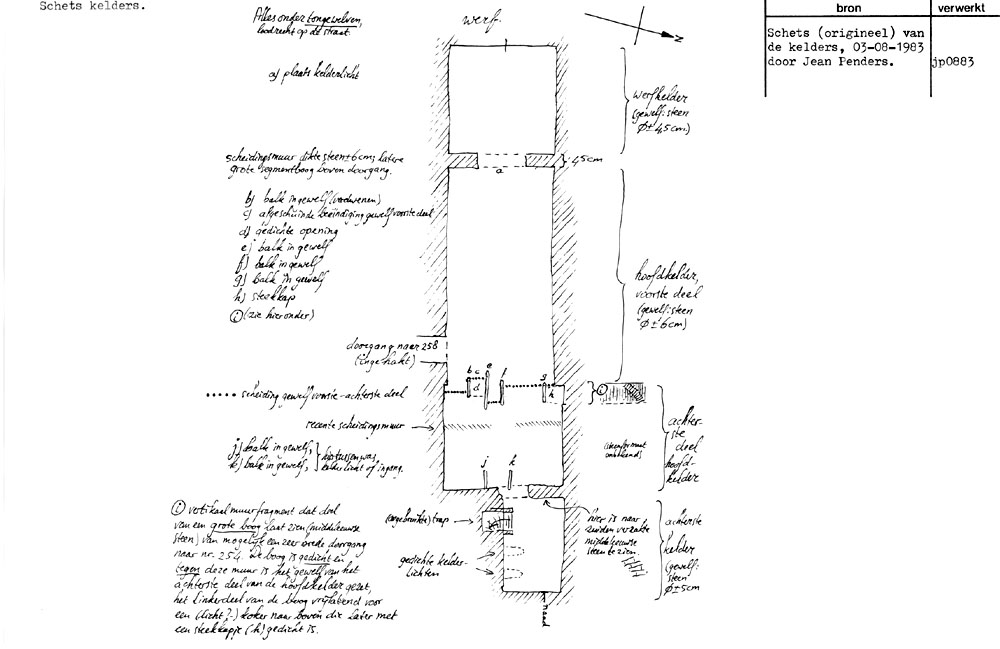 Schets kelders.
bron
verwerkt
Schets (origineel) van
de kelders, 03-08-1983
door Jean Penders.
jp0883
Alles onder tongewelven,
loodrecht op de straat.
werf.
N
a) plaats kelderlicht
werfkelder
(gewelf: steen
Ø ± 4,5cm)
scheidingsmuur dikte steen ± 6cm; latere
grote segmentboog boven doorgang.
a
45cm
b) balk in gewelf (verdwenen)
c) afgeschuinde beëindiging gewelf voorste deel
d) gedichte opening
e) balk in gewelf
f) balk in gewelf
g) balk in gewelf
h) steekkap
i (zie hieronder)
hoofdkelder,
voorste deel
(gewelf: steen
Ø ± 6cm)
doorgang naar 258
(ingehakt)
b c e
d
f
g
h
i
..... scheiding gewelf voorste-achterste deel
recente scheidingsmuur
achter-
ste
deel
hoofd-
kelder
(steenformaat
onbekend)
j) balk in gewelf,
k) balk in gewelf,
hiertussen was
kelderlicht of ingang.
j k
i vertikaal muurfragment dat deel
van een grote boog laat zien (middeleeuwse
steen) van mogelijk een zeer brede doorgang
naar nr. 254. De boog is gedicht en
tegen deze muur is het gewelf van het
achterste deel van de hoofdkelder gezet,
het linkerdeel van de boog vrijlatend voor
een (licht?-) koker naar boven die later met
een steekkapje (h) gedicht is.
(ongebruikte) trap
gedichte kelder-
lichten
hier is naar
zuiden verzakte
middeleeuwse
steen te zien.
achterste
kelder
(gewelf:
steen
Ø ± 5cm
naad